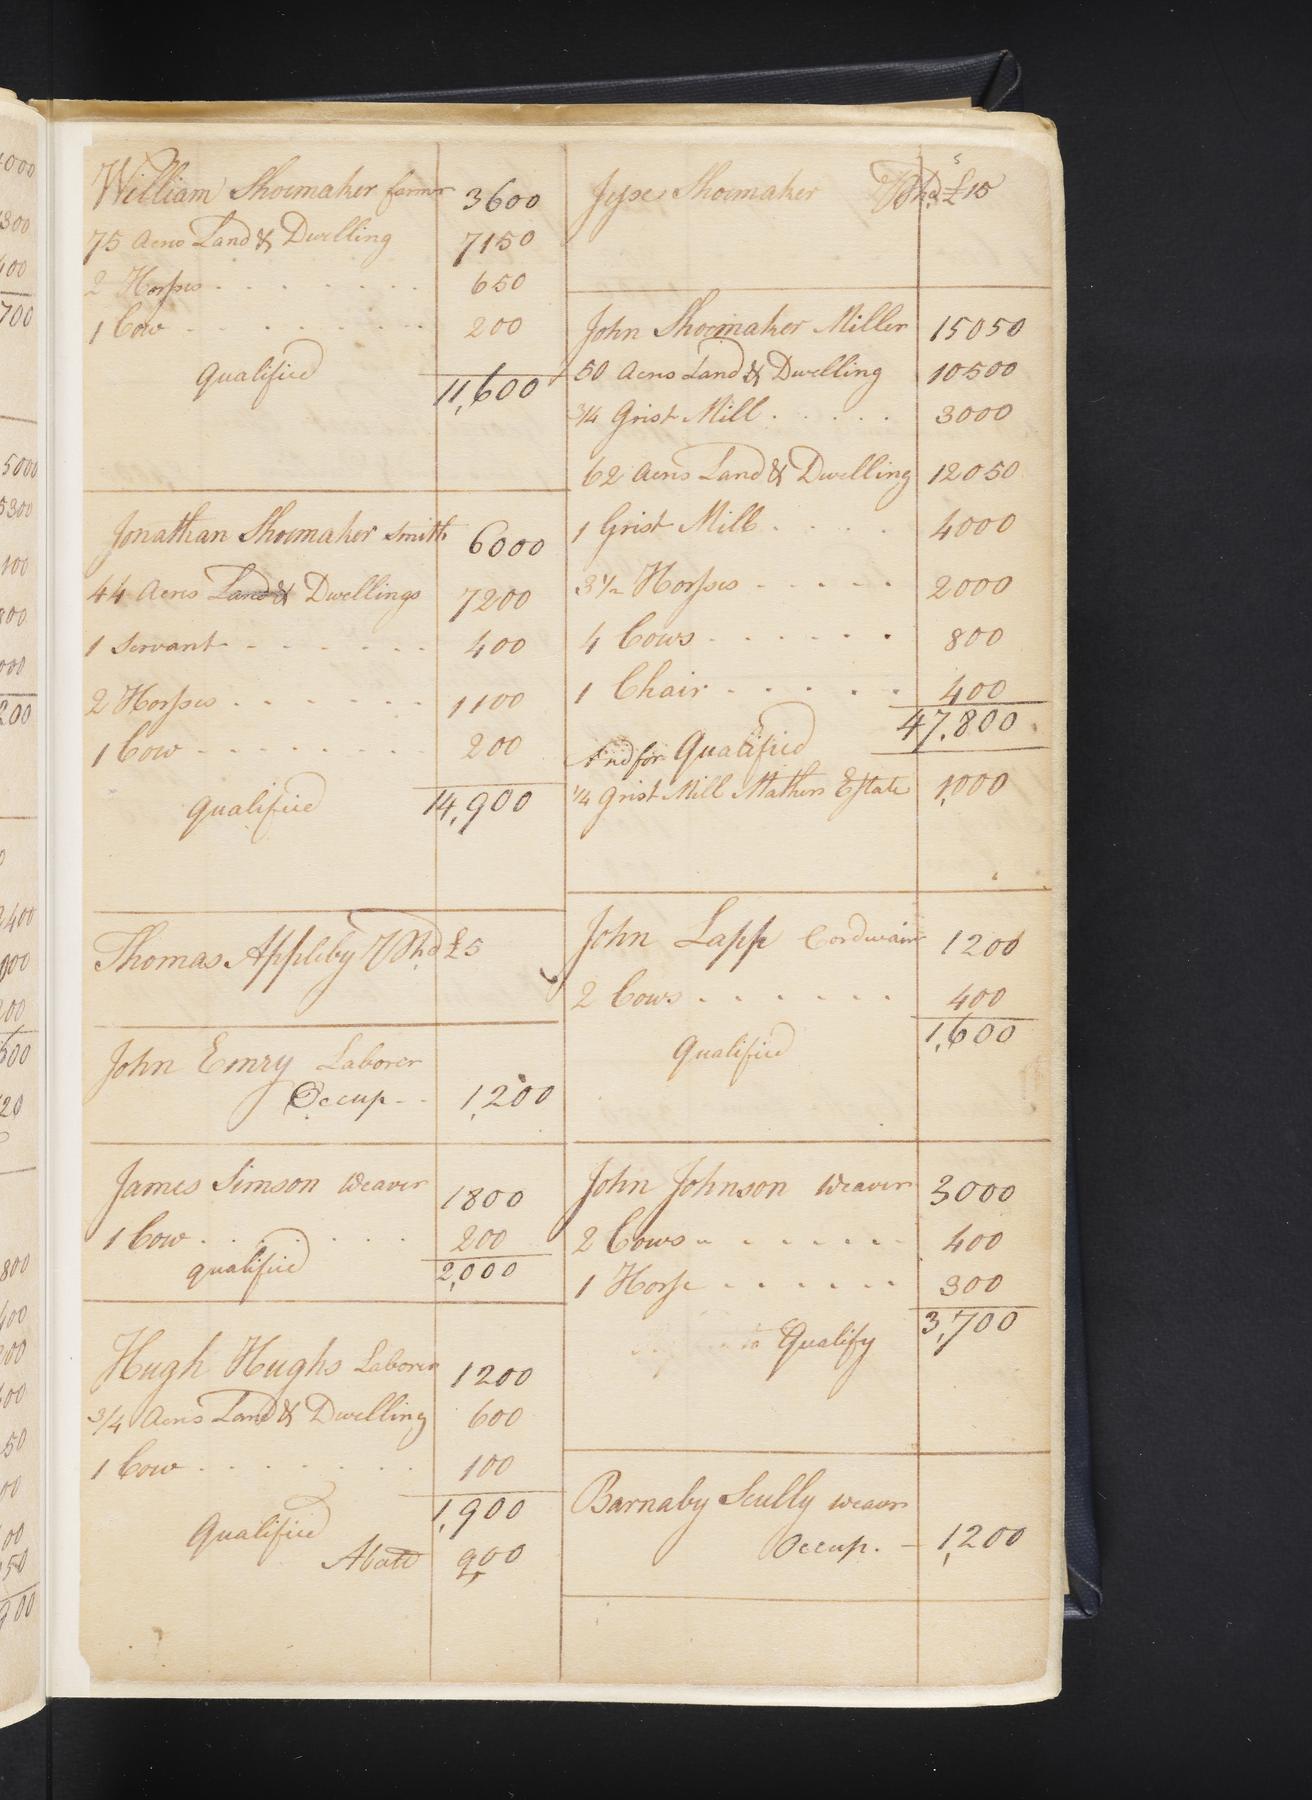 William Shoemaker farmr 3600
75 Acres Land & Dwelling 7150
2 Horses 650
1 Cow 200
Qualified 11,600
Jonathan Shoemaker Smith 6000
44 Acres Land & Dwellings 7200
1 Servant 400
2 Horses 1100
1 Cow 200
Qualified 14,900
Thomas Appleby £5
John Emry Laborer
Occup 1,200
James Simson Weaver 1800
1 Cow 200
qualified 2,000
Hugh Hughs Laborer 1200
3/4 Acres Land & Dwelling 600
1 Cow 100
Qualified 1,900
Abatd 900
Shoemaker £15
John Shoemaker Miller 15050
50 Acres Land & Dwelling 10500
3/4 Grist Mill 3000
62 Acres Land & Dwelling 12050
1 Grist Mill 4000
3 1/2 Horses 2000
4 Cows 800
1 Chair 400
47,800
And for Qualified
1/4 Grist Mill Mathers Estate 1,000
John Lapp Cordwainr 1200
2 Cows 400
Qualified 1,600
John Johnson Weaver 3000
2 Cows 400
1 Horse 300
Qualify 3,700
Barnaby Scully weavr
Occup. 1,200